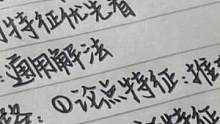 特征优先看
通用解法
①论点特征:推
特征